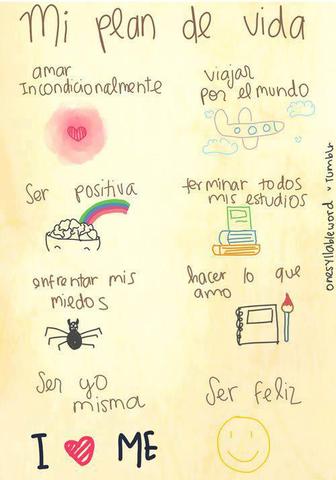 Mi plan de vida
amar
Incondicionalmente
viajar
por el mundo
Ser positiva
terminar todos
mis estudios
enfrentar mis
miedos
hacer lo que
amo
Ser yo
misma
I ME
Ser feliz
onesyllableword Tumblr